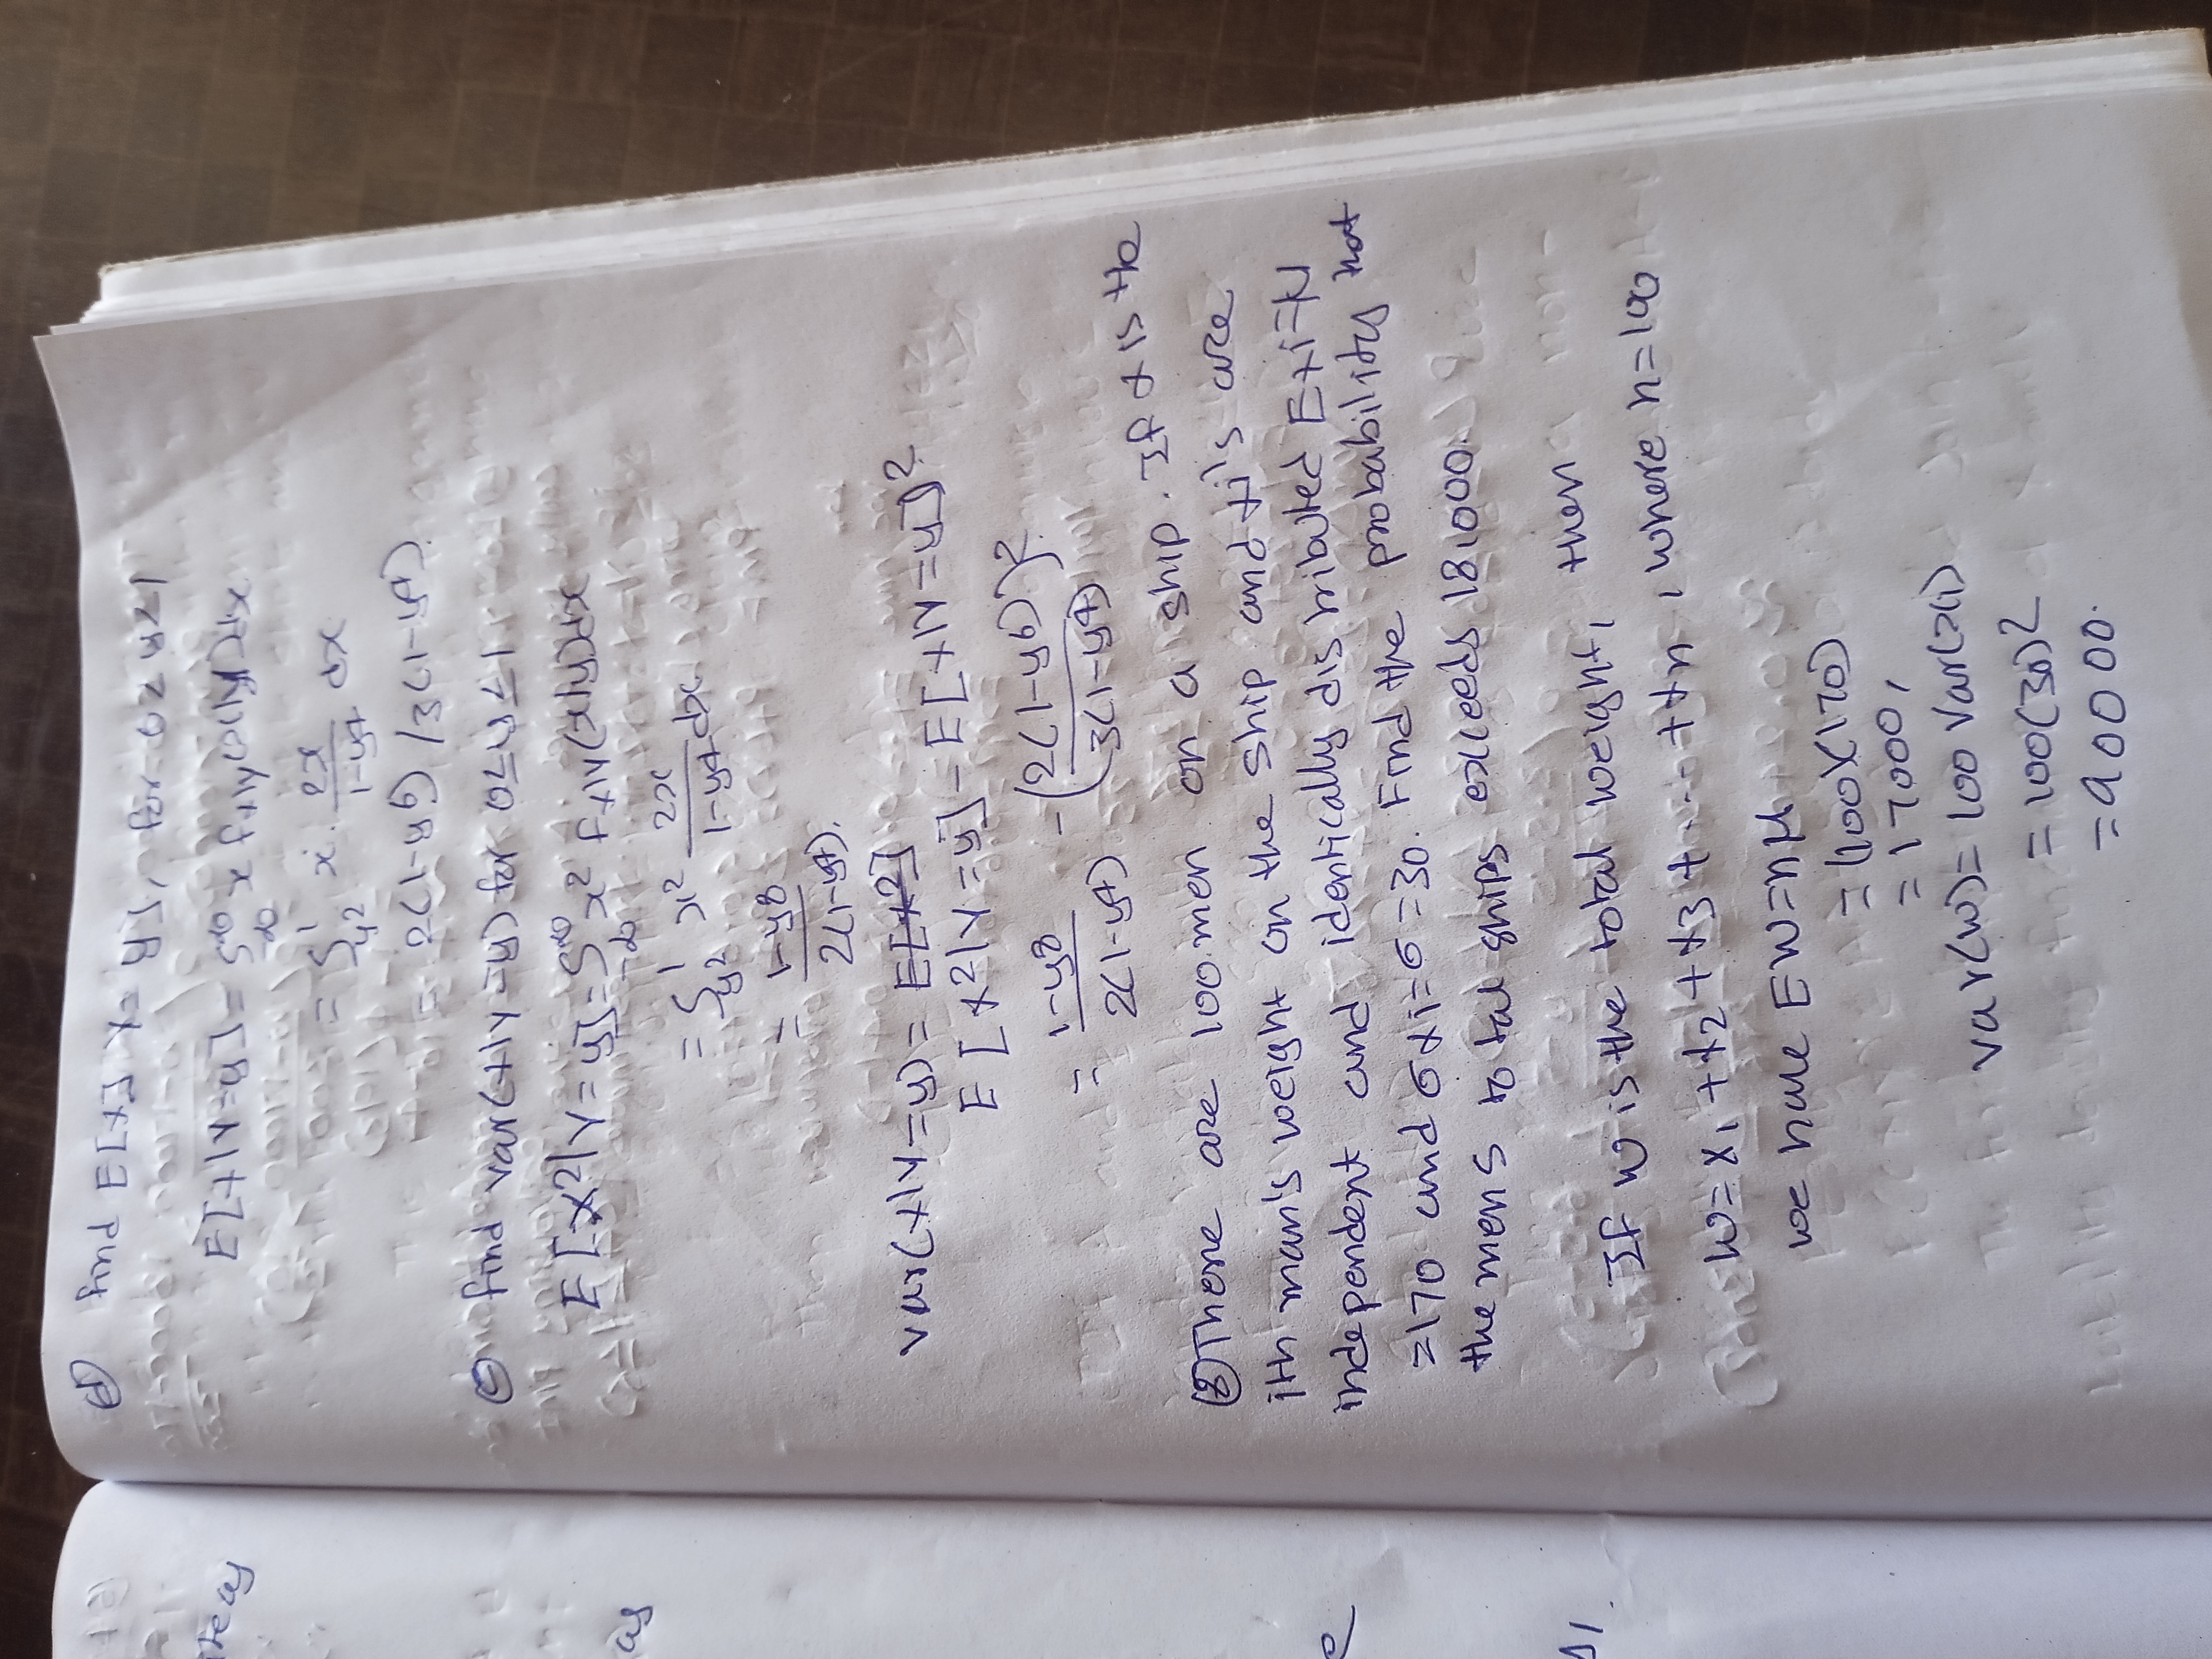 d) find E[x] x = y], for 0≤ y≤1
E[x|Y=y] = ∫∞-∞ x fx|y(x|y)dx
= ∫1y2 x. 2x/1-y4 dx
= 2(1-y6) /3(1-y4).
e) find var(x|Y=y) for 0≤y≤1
E[x2|Y=y]=∫∞-∞ x2 fx|Y(x|y)dx
= ∫1y2 x2 2x/1-y4 dx
= 1-y8/2(1-y4).
var(x|Y=y) = E[x2]
E[x2|Y=y]-E[x|Y=y]2.
= 1-y8/2(1-y4) - (2(1-y6)/3(1-y4))2.
(8) There are 100 men on a ship. If x is the
ith man's weight on the ship and xi's are
independent and identically distributed Exi=μ
=170 and σxi=σ=30. Find the probability that
the mens total ships exceeds 18,000.
If w is the total weight, then
w= x1 +x2 +x3 +......+xn, where n=100
we have EW=nμ
= (100)(170)
= 17000,
var(w)= 100 var(xi)
= 100(30)2
= 90000.